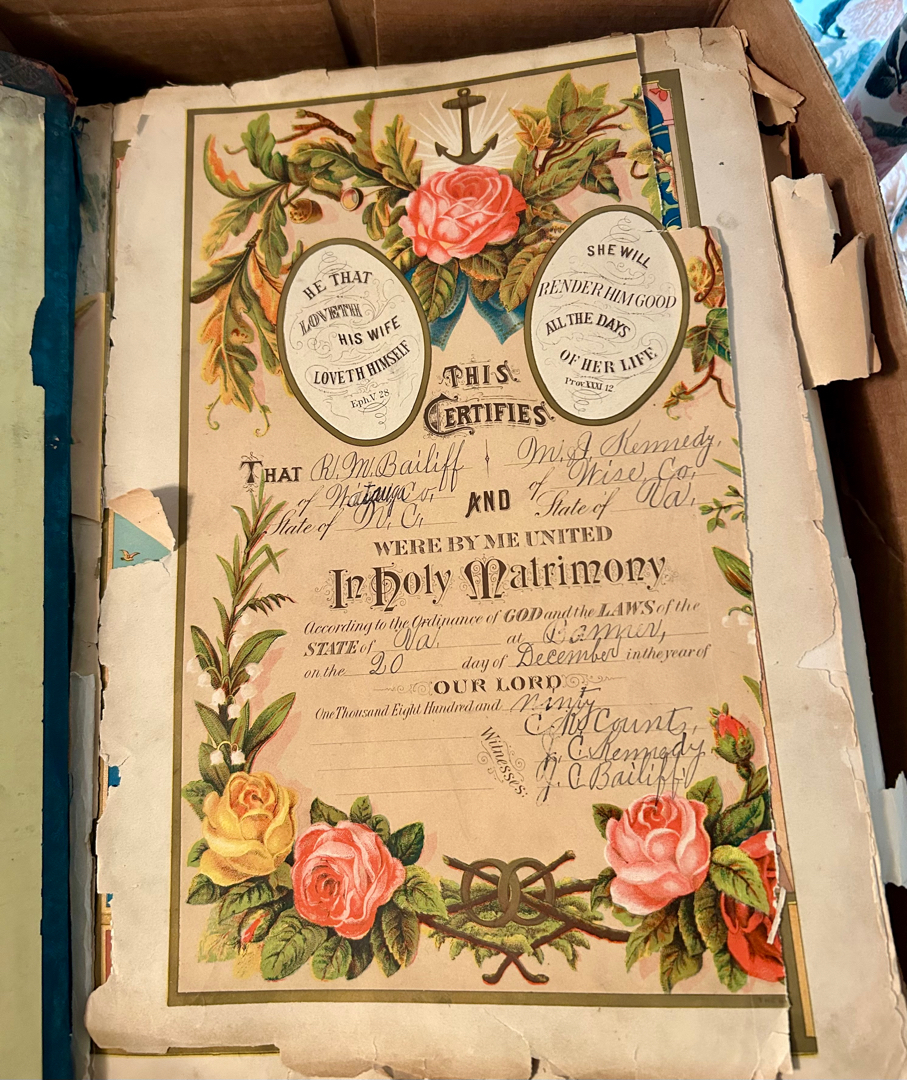 HE THAT
LOVETH
HIS WIFE
LOVETH HIMSELF
Eph. V 28
SHE WILL
RENDER HIM GOOD
ALL THE DAYS
OF HER LIFE
Prov. XXXI 12
THIS
CERTIFIES
THAT R. M. Bailiff M. J. Kennedy,
of Watauga Co, AND of Wise, Co,
State of N. C. State of Va.
WERE BY ME UNITED
In Holy Matrimony
According to the Ordinance of GOD and the LAWS of the
STATE of Va. at
on the 20 day of December in the year of
OUR LORD
One Thousand Eight Hundred and ninty
Witnesses:
J. C. Kennedy
J. C. Bailiff